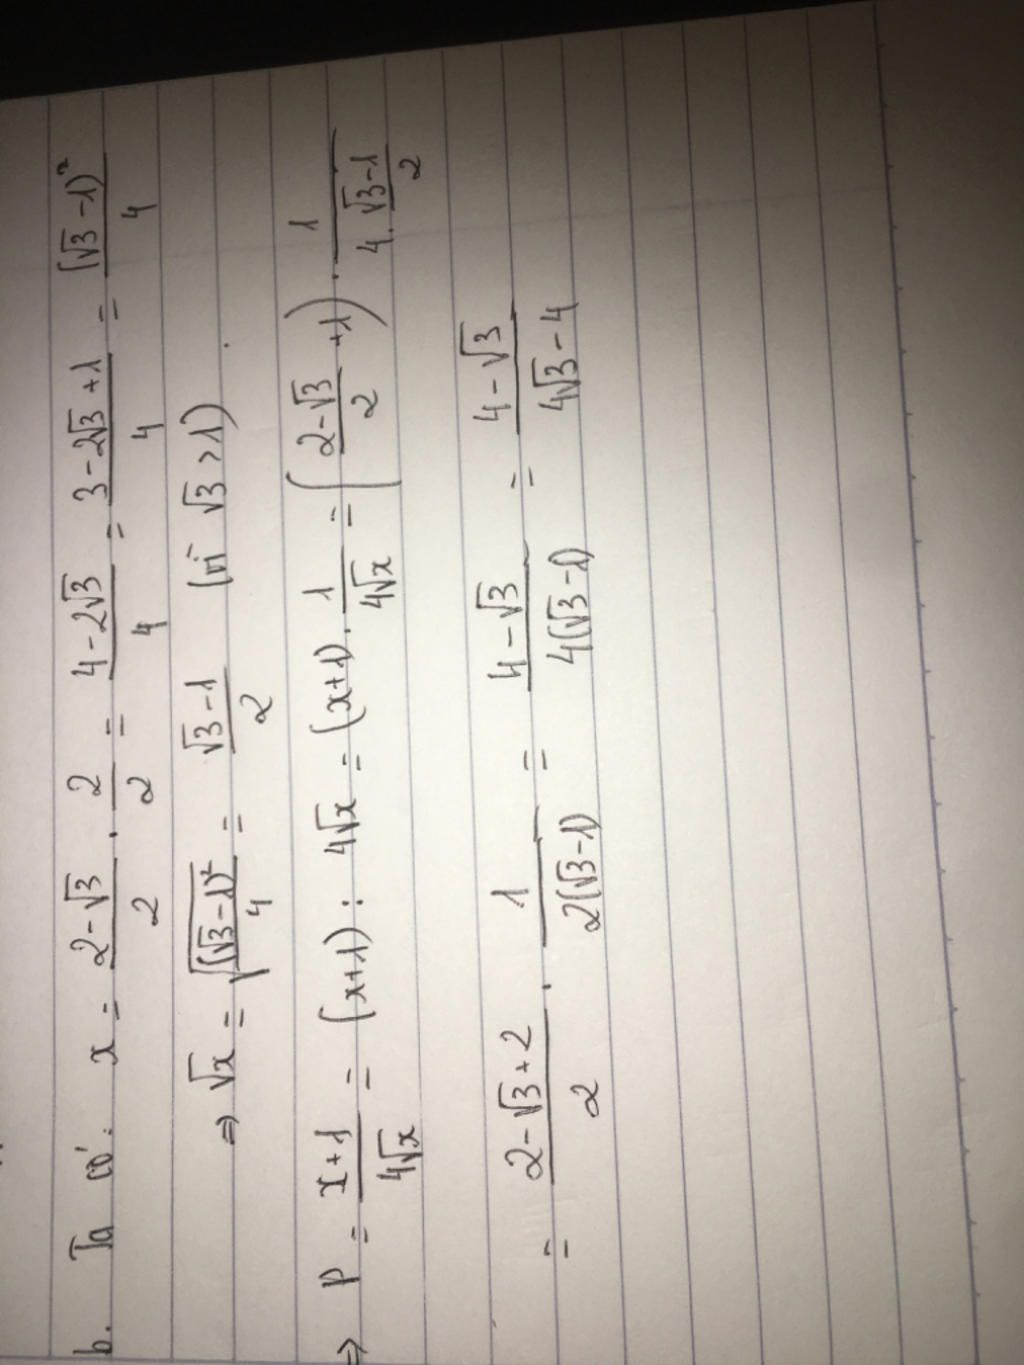 b. Ta có: x = (2-√3)/2 . 2/2 = (4-2√3)/4 = (3-2√3+1)/4 = (√3-1)²/4
⇒ √x = √((√3-1)²/4) = (√3-1)/2 (vì √3>1).
⇒ P = (x+1)/(4√x) = (x+1) : 4√x = (x+1) . 1/(4√x) = ((2-√3)/2 +1) . 1/(4.(√3-1)/2)
= (2-√3+2)/2 . 1/(2(√3-1)) = (4-√3)/(4(√3-1)) = (4-√3)/(4√3-4)